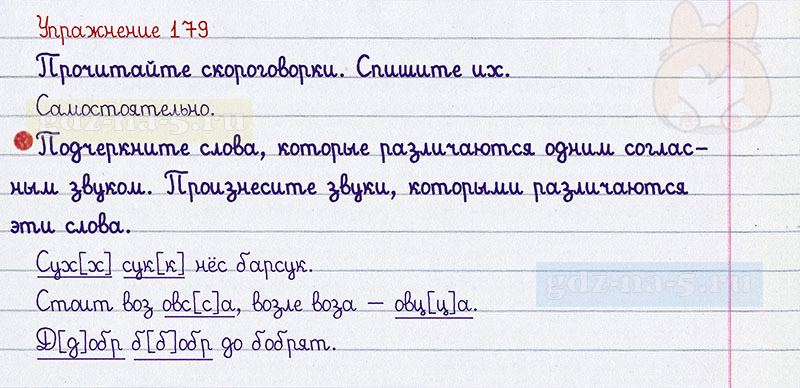 Упражнение 179
Прочитайте скороговорки. Спишите их.
Самостоятельно.
gdz-na-5.ru
Подчеркните слова, которые различаются одним соглас-
ным звуком. Произнесите звуки, которыми различаются
эти слова.
Сух[х] сук[к] нёс барсук.
gdz-na-5.ru
Стоит воз овс[с]а, возле воза – овц[ц]а.
Д[д]обр б[б]обр до бобрят.